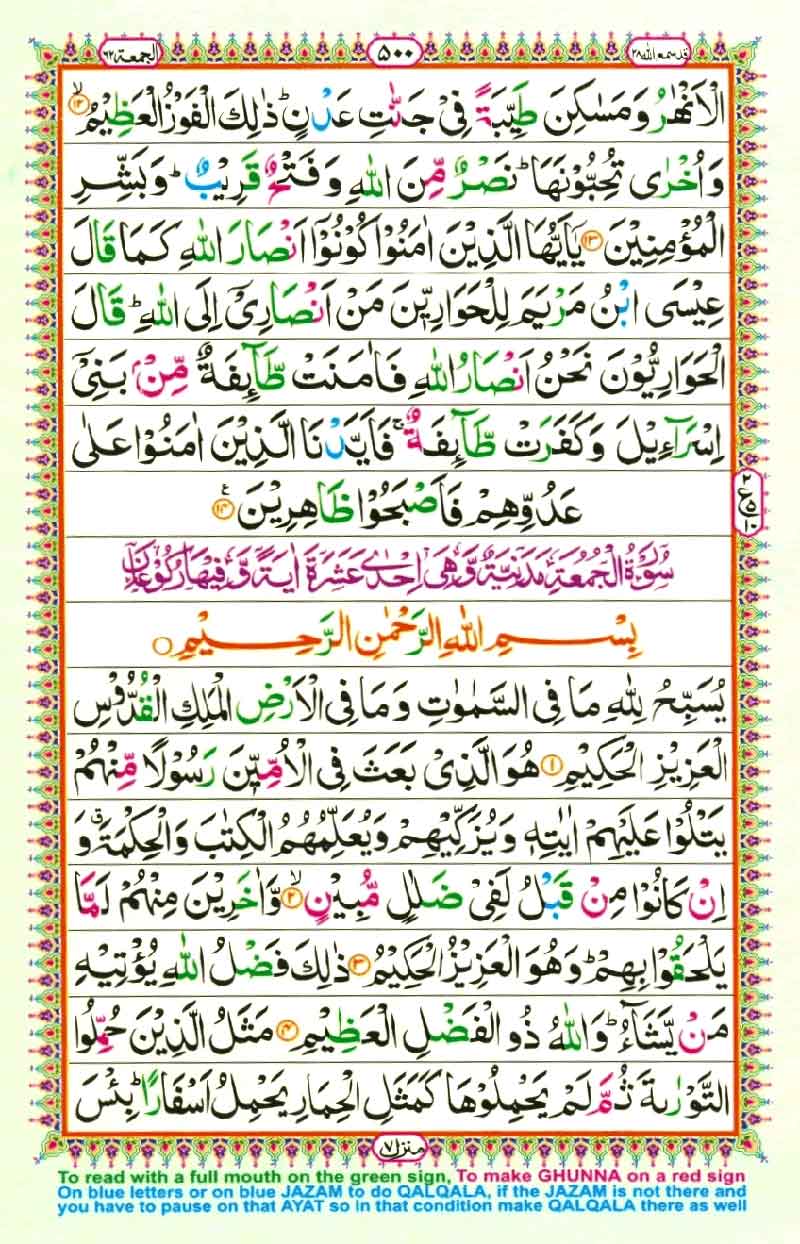 قد سمع الله ۲۸ ۵۰۰ الجمعة ۶۲
الۡاَنۡهٰرُ وَمَسٰكِنَ طَيِّبَةً فِىۡ جَنّٰتِ عَدۡنٍؕ ذٰلِكَ الۡفَوۡزُ الۡعَظِيۡمُۙ‏﴿۱۲﴾
وَاُخۡرٰى تُحِبُّوۡنَهَاؕ نَصۡرٌ مِّنَ اللّٰهِ وَفَتۡحٌ قَرِيۡبٌؕ وَبَشِّرِ
الۡمُؤۡمِنِيۡنَ‏﴿۱۳﴾ يٰۤاَيُّهَا الَّذِيۡنَ اٰمَنُوۡا كُوۡنُوۡۤا اَنۡصَارَ اللّٰهِ كَمَا قَالَ
عِيۡسَى ابۡنُ مَرۡيَمَ لِلۡحَوَارِيّٖنَ مَنۡ اَنۡصَارِىۡۤ اِلَى اللّٰهِؕ قَالَ
الۡحَوَارِيُّوۡنَ نَحۡنُ اَنۡصَارُ اللّٰهِ فَاٰمَنَتۡ طَّآئِفَةٌ مِّنۡۢ بَنِىۡۤ
اِسۡرَآءِيۡلَ وَكَفَرَتۡ طَّآئِفَةٌۚ فَاَيَّدۡنَا الَّذِيۡنَ اٰمَنُوۡا عَلٰى
عَدُوِّهِمۡ فَاَصۡبَحُوۡا ظَاهِرِيۡنَ‏﴿۱۴﴾
۲ ع ۵ ۱۰
سُوۡرَةُ الۡجُمُعَةِ مَدَنِيَّةٌ وَّهِىَ اِحۡدٰى عَشَرَةَ اٰيَةً وَّفِيۡهَا رُكُوۡعَانِ
بِسۡمِ اللّٰهِ الرَّحۡمٰنِ الرَّحِيۡمِ
يُسَبِّحُ لِلّٰهِ مَا فِى السَّمٰوٰتِ وَمَا فِى الۡاَرۡضِ الۡمَلِكِ الۡقُدُّوۡسِ
الۡعَزِيۡزِ الۡحَكِيۡمِ‏﴿۱﴾ هُوَ الَّذِىۡ بَعَثَ فِى الۡاُمِّيّٖنَ رَسُوۡلًا مِّنۡهُمۡ
يَتۡلُوۡا عَلَيۡهِمۡ اٰيٰتِهٖ وَيُزَكِّيۡهِمۡ وَيُعَلِّمُهُمُ الۡكِتٰبَ وَالۡحِكۡمَةَۗ وَ
اِنۡ كَانُوۡا مِنۡ قَبۡلُ لَفِىۡ ضَلٰلٍ مُّبِيۡنٍۙ‏﴿۲﴾ وَّاٰخَرِيۡنَ مِنۡهُمۡ لَمَّا
يَلۡحَقُوۡا بِهِمۡؕ وَهُوَ الۡعَزِيۡزُ الۡحَكِيۡمُ‏﴿۳﴾ ذٰلِكَ فَضۡلُ اللّٰهِ يُؤۡتِيۡهِ
مَنۡ يَّشَآءُؕ وَاللّٰهُ ذُو الۡفَضۡلِ الۡعَظِيۡمِ‏﴿۴﴾ مَثَلُ الَّذِيۡنَ حُمِّلُوا
التَّوۡرٰٮةَ ثُمَّ لَمۡ يَحۡمِلُوۡهَا كَمَثَلِ الۡحِمَارِ يَحۡمِلُ اَسۡفَارًاؕ بِئۡسَ
منزل ۷
To read with a full mouth on the green sign, To make GHUNNA on a red sign
On blue letters or on blue JAZAM to do QALQALA, if the JAZAM is not there and
you have to pause on that AYAT so in that condition make QALQALA there as well